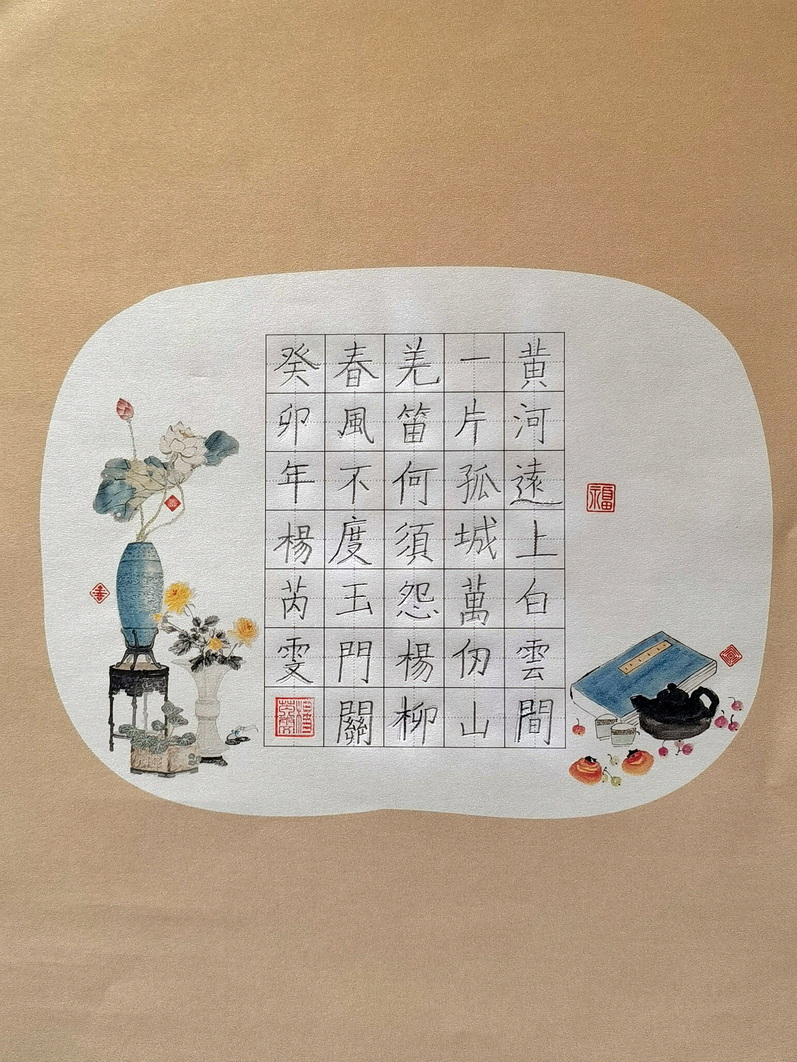 黄河遠上白雲間
一片孤城萬仞山
羌笛何須怨楊柳
春風不度玉門關
癸卯年楊芮雯
福